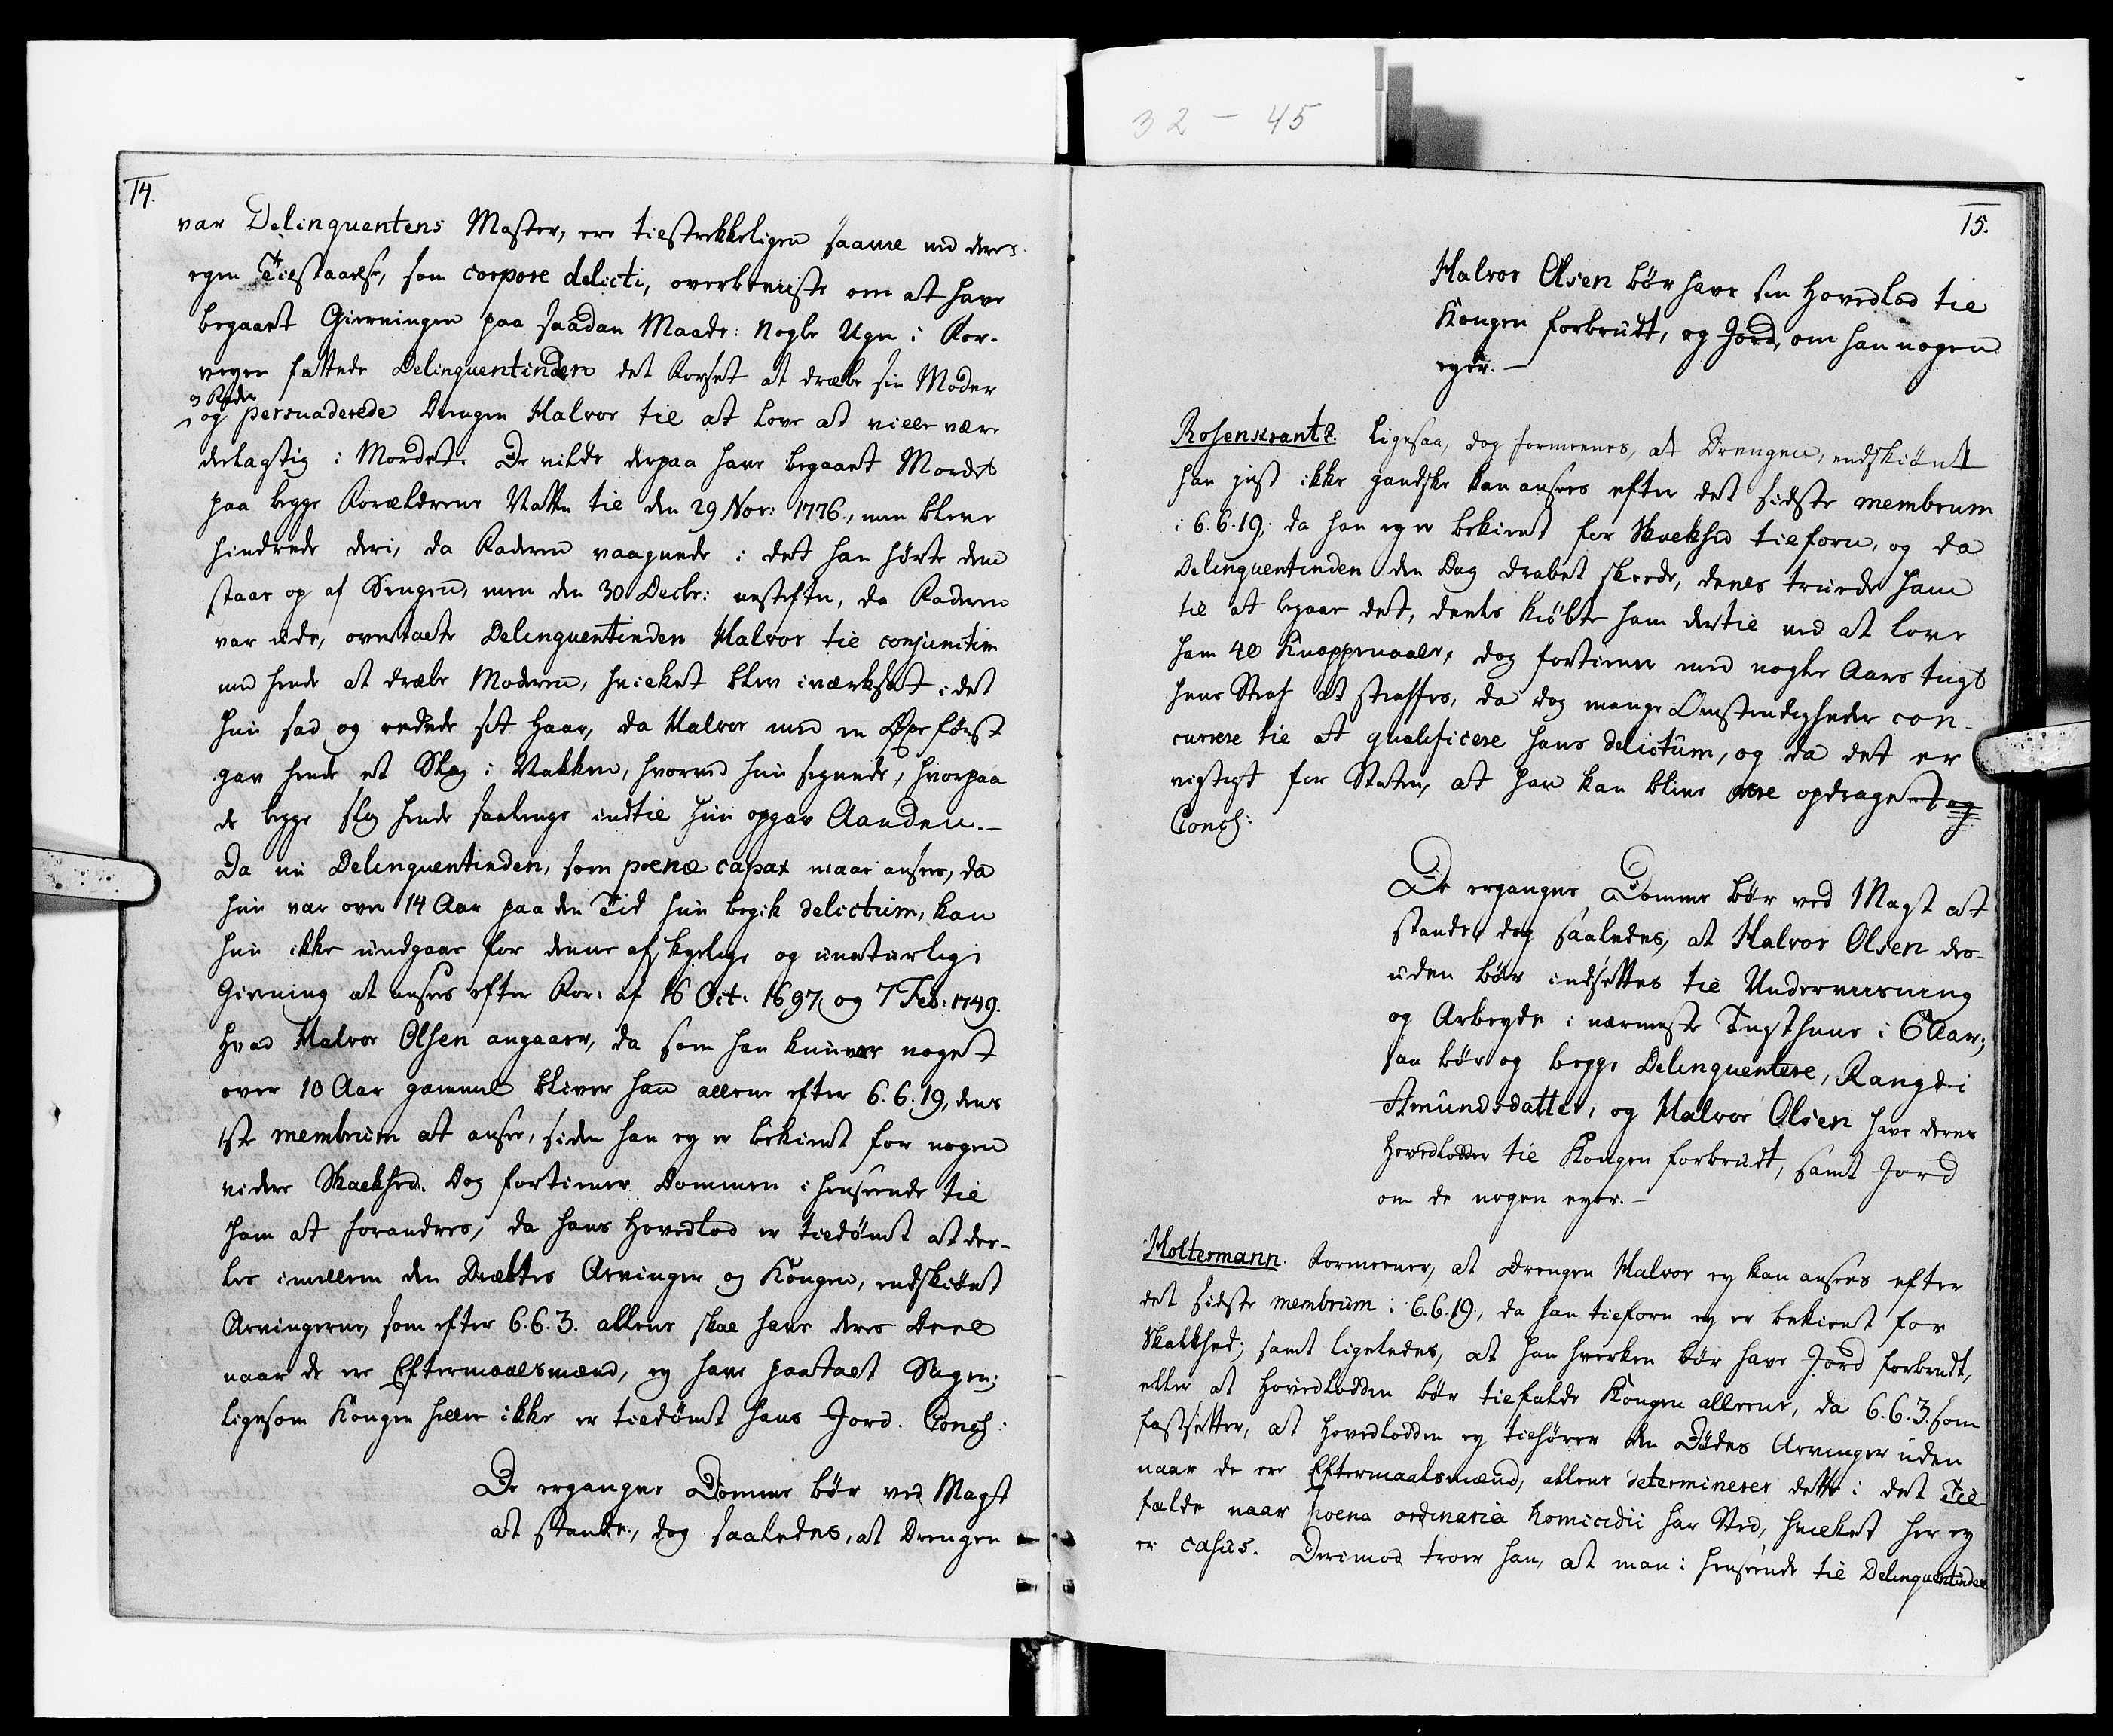 32 - 45
14.
var Delinquentens Moster, ere tilstrekkeligen saavel ved deres
egen Tilstaaelse, som corpore delicti, overbeviiste om at have
begaaet Gierningen paa saadan Maade: Nogle Uger i For-
veyen fattede Delinquentinden det Forset at dræbe sin Moder
og Fader
og persuaderede Drengen Halvor til at love at ville være
delagtig i Mordet. De vilde derpaa have begaaet Mordet
paa begge Forældrene Natten til den 29 Nov: 1776, men bleve
hindrede deri, da Faderen vaagnede i det han hørte dem
staae op af Sengen, men den 30 Decbr: nestefter, da Faderen
var ude, overtalte Delinquentinden Halvor til conjunctim
med hende at dræbe Moderen, hvilket blev iværksat, i det
hun sad og redede sit Haar, da Halvor med en Øxe først
gav hende et Slag i Nakken, hvorved hun segnede, hvorpaa
de begge slog hende saalenge indtil hun opgav Aanden.-
Da nu Delinquentinden, som poenæ capax maae ansees, da
hun var over 14 Aar paa den Tid hun begik delictum, kan
hun ikke undgaae for denne afskyelige og unaturlige
Gierning at ansees efter For: af 16 Oct: 1697 og 7 Feb: 1749.
Hvad Halvor Olsen angaaer, da som han kuns var noget
over 10 Aar gammel bliver han allene efter 6.6.19, dens
1ste membrum at ansee, siden han ey er bekiendt for nogen
videre Skalkhed. Dog fortiener Dommen i henseende til
ham at forandres, da hans Hovedlod er tildømt at dee-
les imellem den Dræbtes Arvinger og Kongen, endskiønt
Arvingerne, som efter 6.6.3. allene skal have deres Deel
naar de ere Eftermaalsmænd, ey have paatalt Sagen;
ligesom Kongen heller ikke er tildømt hans Jord. Concl:
De ergangne Domme bør ved Magt
at stande, dog saaledes, at Drengen
15.
Halvor Olsen bør have sin Hovedlod til
Kongen forbrudt, og Jord, om han nogen
eyer.-
Rosenkrantz. Ligesaa, dog formeenes, at Drengen, endskiønt
han just ikke gandske kan ansees efter det sidste membrum
i 6.6.19, da han ey er bekiendt for Skalkhed tilforn, og da
Delinquentinden den Dag Drabet skeede, deels truede ham
til at begaae det, deels kiøbte ham dertil ved at love
ham 40 Knappenaale, dog fortiener med nogle Aars Tugt
huus Straf at straffes, da dog mange Omstendigheder con-
currere til at qualificere hans delictum, og da det er
vigtigt for Staten, at han kan blive opdraget og
Concl:
De ergangne Domme bør ved Magt at
stande, dog saaledes, at Halvor Olsen des-
uden bør indsettes til Underviisning
og Arbeyde i nærmeste Tugthuus i 6 Aar;
saa bør og begge Delinquentere, Rangdi
Amundsdatter, og Halvor Olsen have deres
Hovedlodder til Kongen forbrudt, samt Jord
om de nogen eyer.-
Holtermann. Formeener, at Drengen Halvor ey kan ansees efter
det sidste membrum i 6.6.19., da han tilforn ey er bekiendt for
Skalkhed; samt ligeledes, at han hverken bør have Jord forbrudt,
eller at Hovedlodden bør tilfalde Kongen allene, da 6.6.3. som
fastsetter, at Hovedlodden ey tilhører den Dødes Arvinger uden
naar de ere Eftermaalsmænd, allene determinerer dette i det Til
fælde naar poena ordinaria homicidii har Sted, hvilket her ey
er casus. Derimod troer han, at man i henseende til Delinquentinden